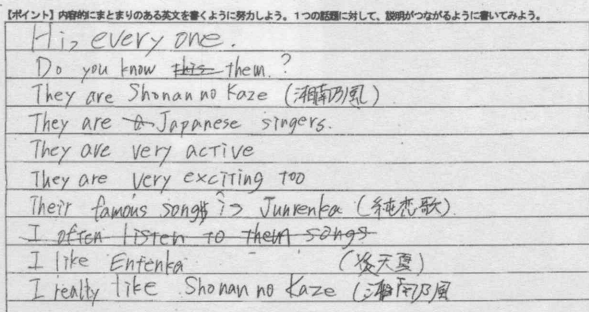 【ポイント】内容的にまとまりのある英文を書くように努力しよう。1つの話題に対して、説明がつながるように書いてみよう。
Hi, every one.
Do you know this them.?
They are Shonan no Kaze (湘南乃風)
They are a Japanese singers.
They are very active
They are very exciting too
Their famous songs is Junrenka (純恋歌).
I often listen to them songs
I like Entenka (炎天夏)
I really like Shonan no Kaze (湘南乃風